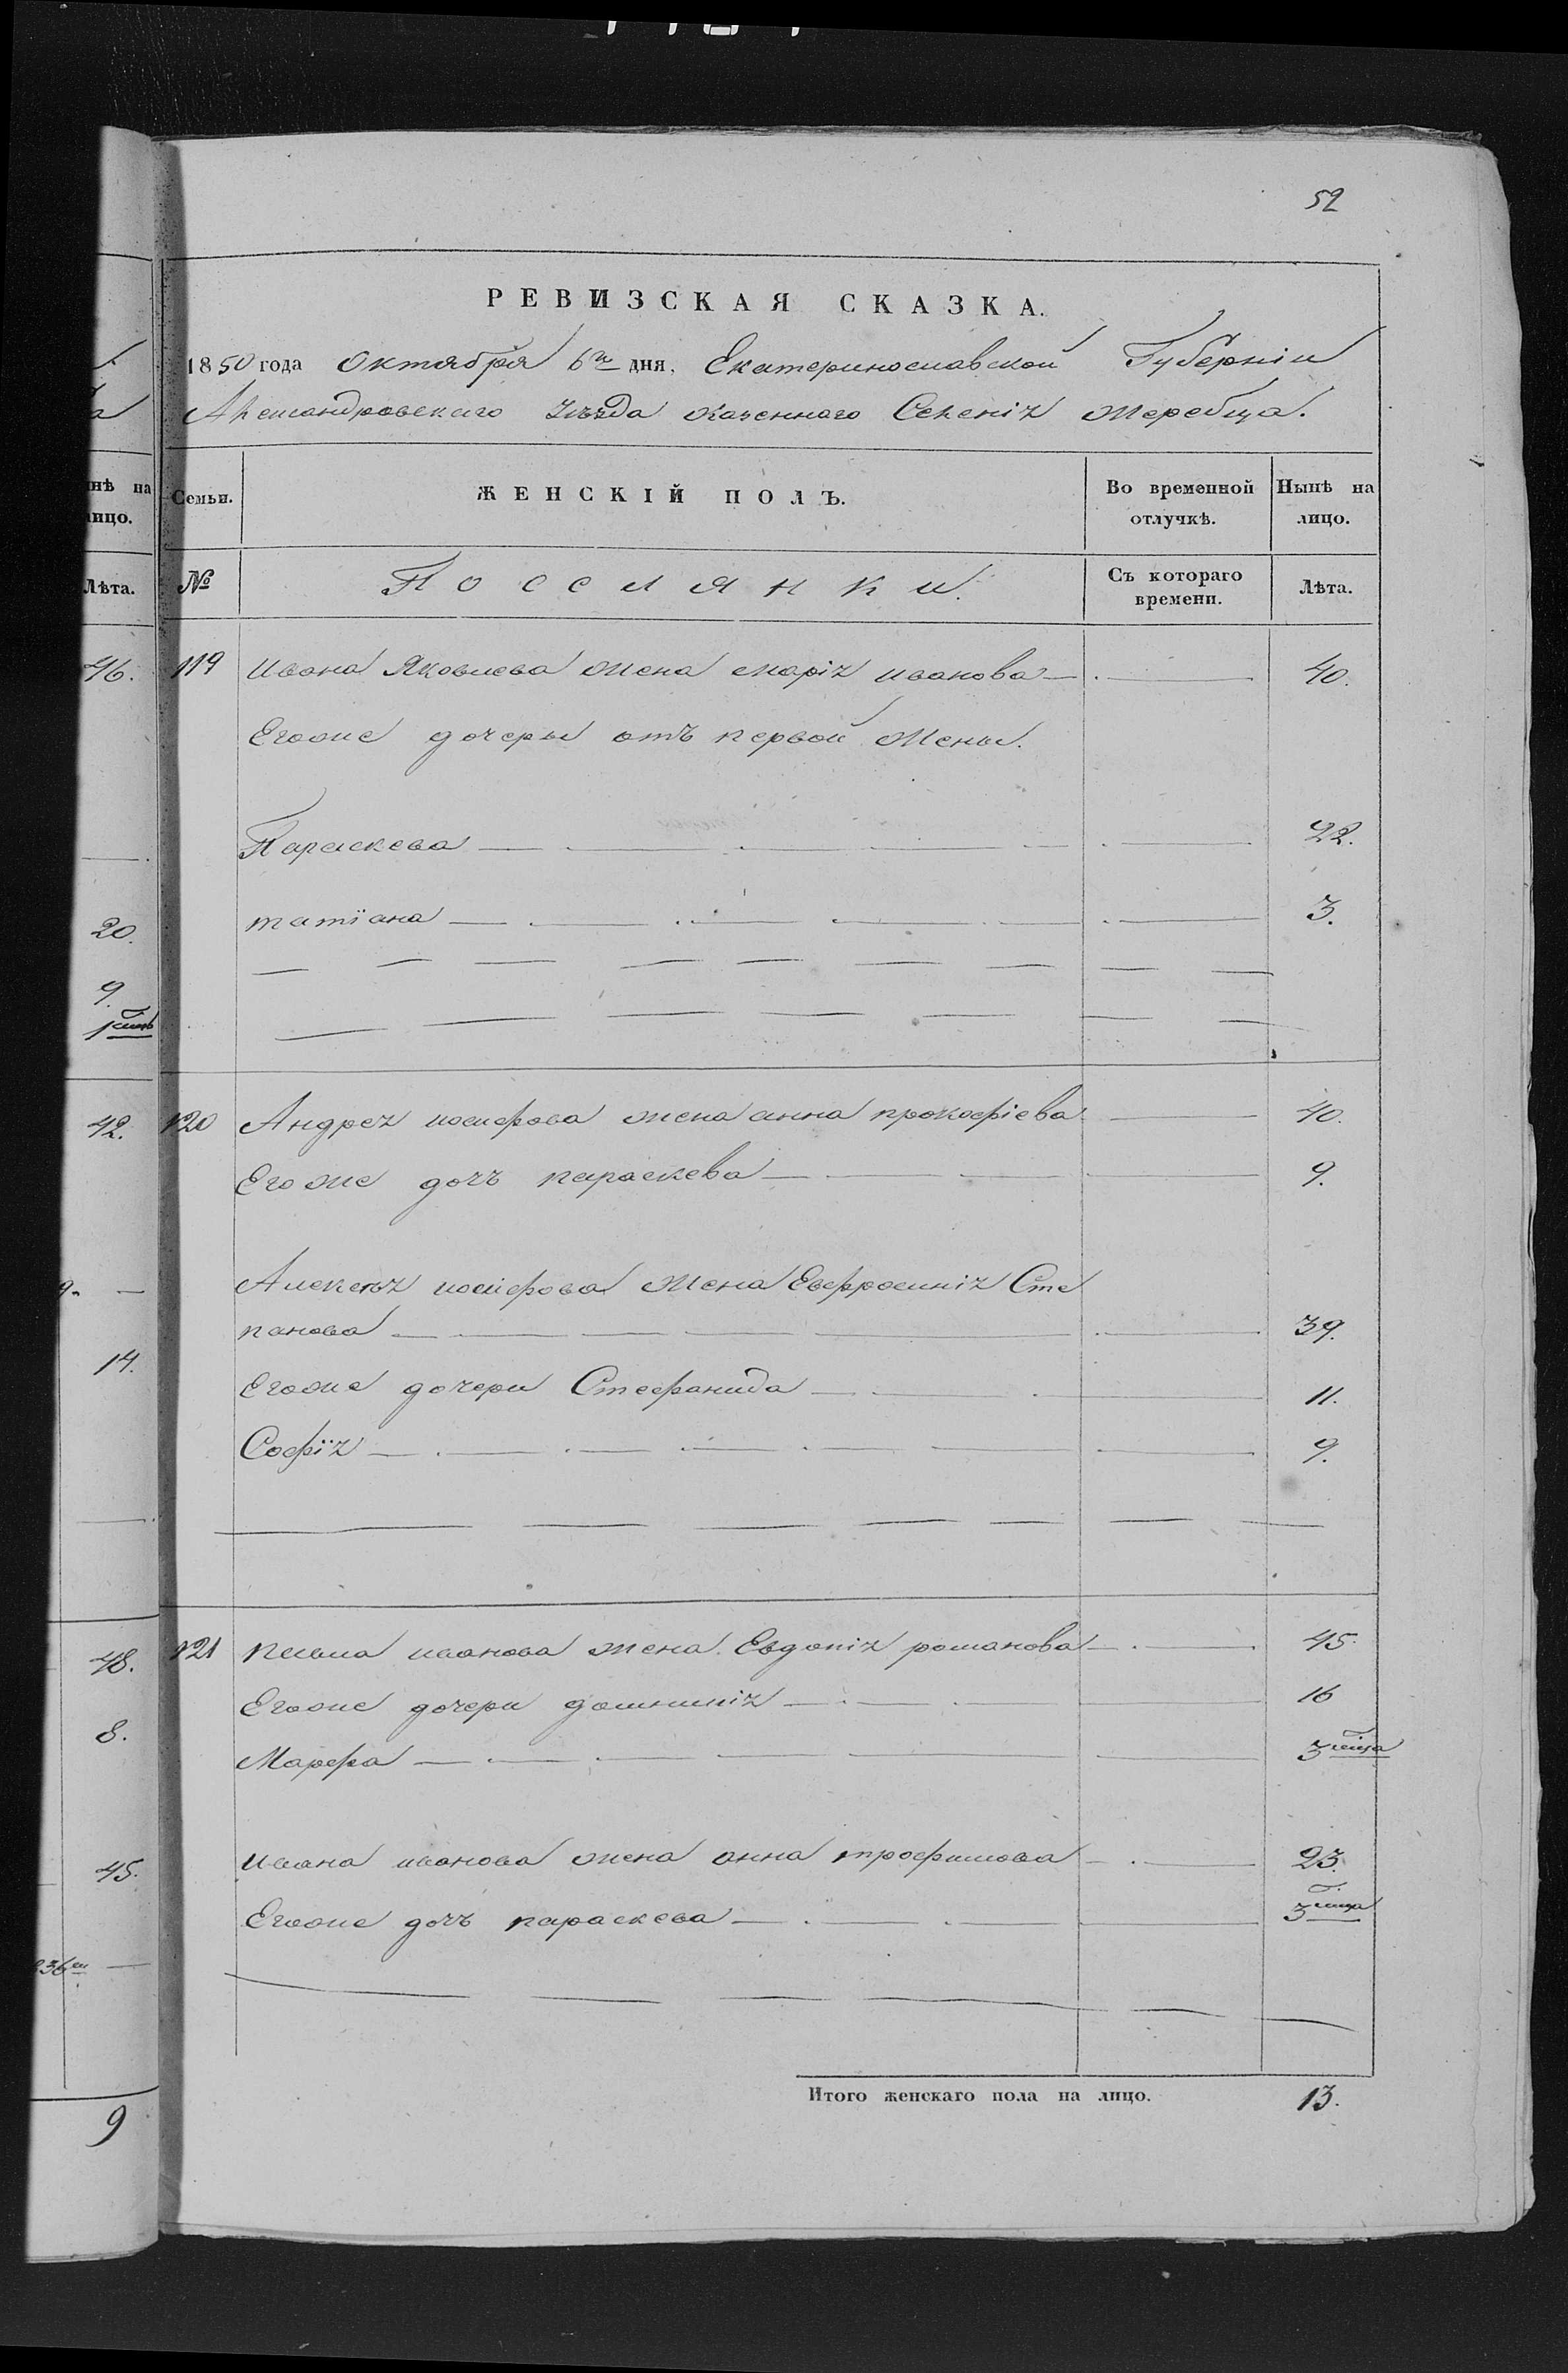 52
РЕВИЗСКАЯ СКАЗКА.
1850 года Октября 6го дня, Екатеринославской Губерніи
Александровскаго уѣзда казеннаго Селенія Жеребца.
Семьи. ЖЕНСКІЙ ПОЛЪ. Во временной отлучкѣ. Нынѣ на лицо.
№ Поселянки. Съ котораго времени. Лѣта.
119 Ивана Яковлева жена марія иванова 40.
Егоже дочеры отъ первой жены.
Параскева 22.
татіана 3.
120 Андрея иосифова жена анна прокофіева 40.
Егоже дочъ параскева 9.
Алексѣя иосифова жена Евфросинія Сте
панова 39.
Егоже дочери Стефанида 11.
Софія 9.
121 павла иванова жена Евдокія романова 45.
Егоже дочери домникія 16
Марфа 3 м-ца
Ивана иванова жена анна трофимова 23.
Егоже дочъ параскева 3 м-ца
Итого женскаго пола на лицо. 13.
нѣ на
лицо.
Лѣта.
46.
20.
9.
42.
14.
48.
8.
45.
9